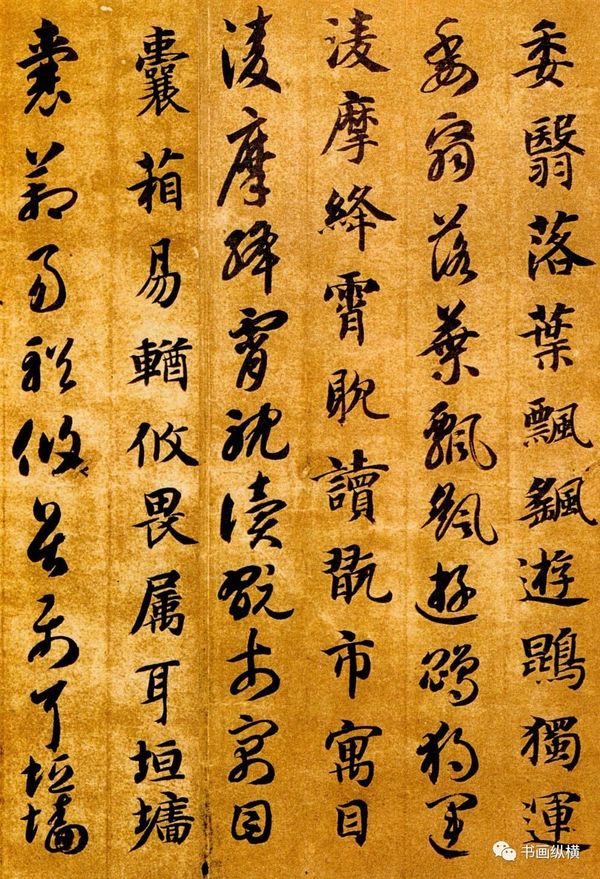 委翳落葉飄颻遊鵾獨運
委翳落葉飄颻遊鵾獨運
淩摩絳霄耽讀翫市寓目
淩摩絳霄耽讀翫市寓目
囊葙易輶攸畏属耳垣墻
囊葙易輶攸畏属耳垣墻
书画纵横